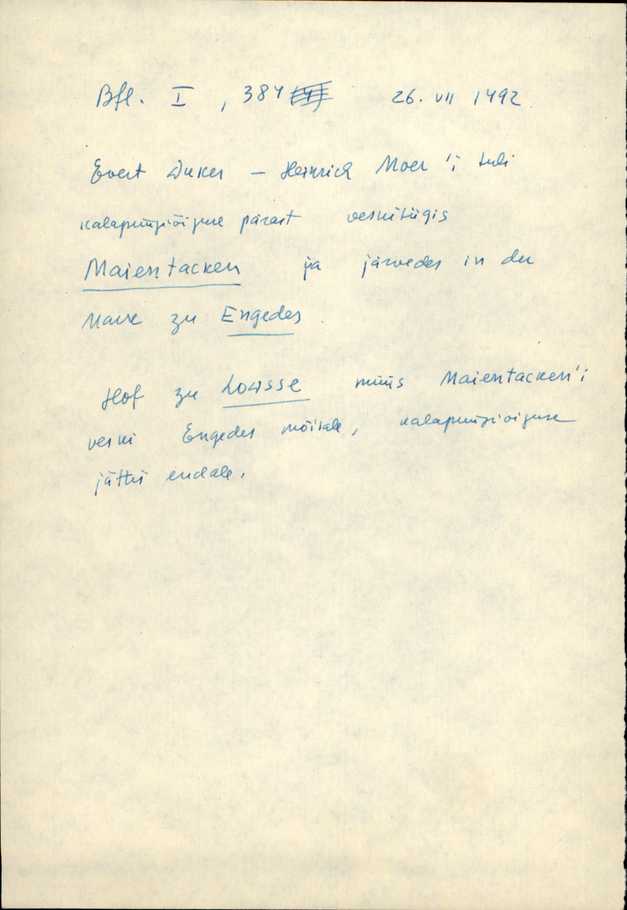 Bfl. I, 384 26. VII 1492
Evert Duker – Heinrich Moer'i tüli
kalapüügiõiguse pärast veskitiigis
Maientacken ja järvedes in der
Marke zu Engedes
Hof zu Loüsse müüs Maientacken'i
veski Engedes mõisale, kalapüügiõiguse
jättis endale.